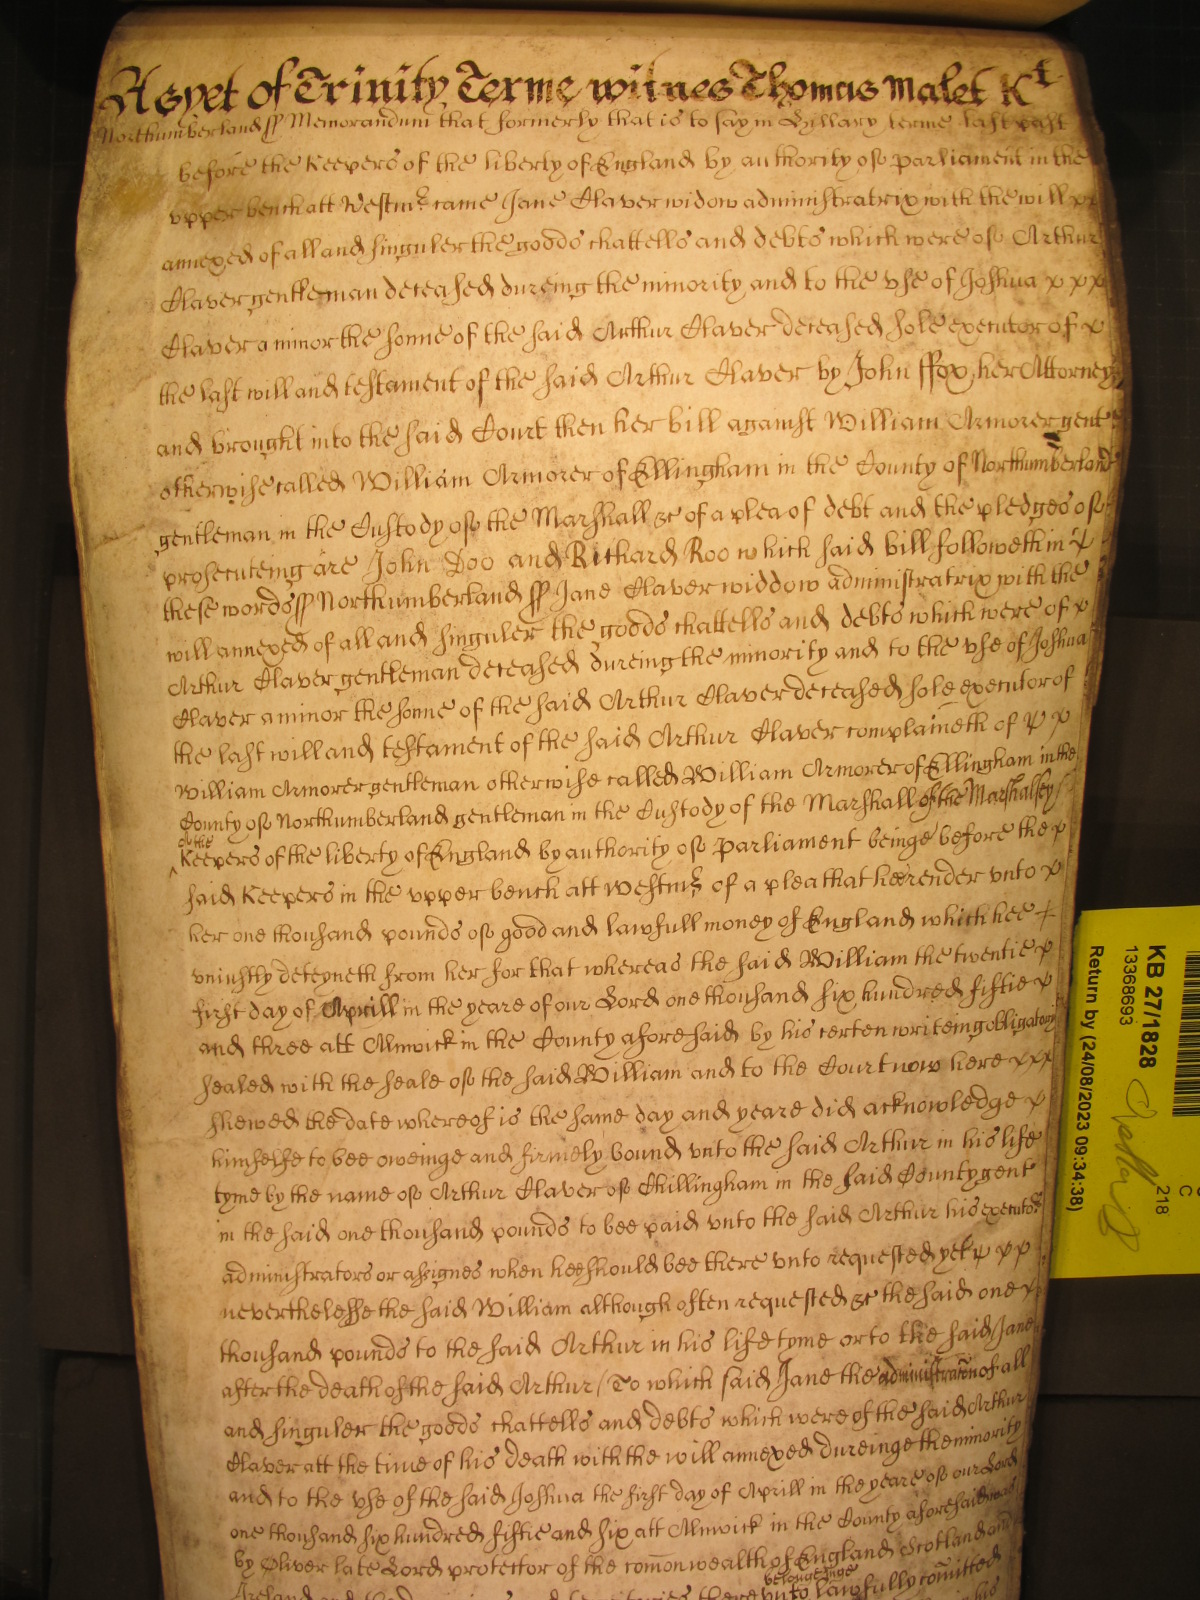 As yet of Trinity Terme witnes Thomas Malet Kt
Northumberland ss Memorandum that formerly that is to say in Hyllary terme last past
before the Keepers of the liberty of England by authority of Parliament in the
vpper bench att Westmr came Jane Claver widow administratrix with the will
annexed of all and singuler the goods chattells and debts which were of Arthur
Claver gentleman deceased dureing the minority and to the vse of Joshua
Claver a minor the sonne of the said Arthur Claver deceased sole executor of
the last will and testament of the said Arthur Claver by John ffox her Attorney
and brought into the said Court then her bill against William Armorer gent
otherwise called William Armorer of Ellingham in the County of Northumberland
gentleman in the Custody of the Marshall &c of a plea of debt and the pledges of
prosecuteing are John Doo and Richard Roo which said bill followeth in
these words ss Northumberland ss Jane Claver widdow administratrix with the
will annexed of all and singuler the goods chattells and debts which were of
Arthur Claver gentleman deceased dureing the minority and to the vse of Joshua
Claver a minor the sonne of the said Arthur Claver deceased sole executor of
the last will and testament of the said Arthur Claver complaineth of
William Armorer gentleman otherwise called William Armorer of Ellingham in the
County of Northumberland gentleman in the Custody of the Marshall of the Marshalsey
of the
Keepers of the liberty of England by authority of Parliament beinge before the
said Keepers in the vpper bench att Westmr of a plea that hee render vnto
her one thousand pounds of good and lawfull money of England which hee
vniustly deteyneth from her for that whereas the said William the twentie
first day of Aprill in the yeare of our Lord one thousand six hundred fiftie
and three att Alnwick in the County aforesaid by his certen writeing obligatory
sealed with the seale of the said William and to the Court now here
shewed the date whereof is the same day and yeare did acknowledge
himselfe to bee oweinge and firmely bound vnto the said Arthur in his life
tyme by the name of Arthur Claver of Chillingham in the said County gent
in the said one thousand pounds to bee paid vnto the said Arthur his executors
administrators or assignes when hee should bee there vnto requested yet
neverthelesse the said William although often requested &c the said one
thousand pounds to the said Arthur in his life tyme or to the said Jane
after the death of the said Arthur / To which said Jane the administracon of all
and singuler the goods chattells and debts which were of the said Arthur
Claver att the time of his death with the will annexed dureinge the minority
and to the vse of the said Joshua the first day of Aprill in the yeare of our Lord
one thousand six hundred fiftie and six att Alnwick in the County aforesaid was
by Oliver late Lord protector of the comonwealth of England Scotland and
belongeinge
Ireland and the vnto lawfully comitted
KB 27/1828
13368693
218
C
Return by (24/08/2023 09:34:38)